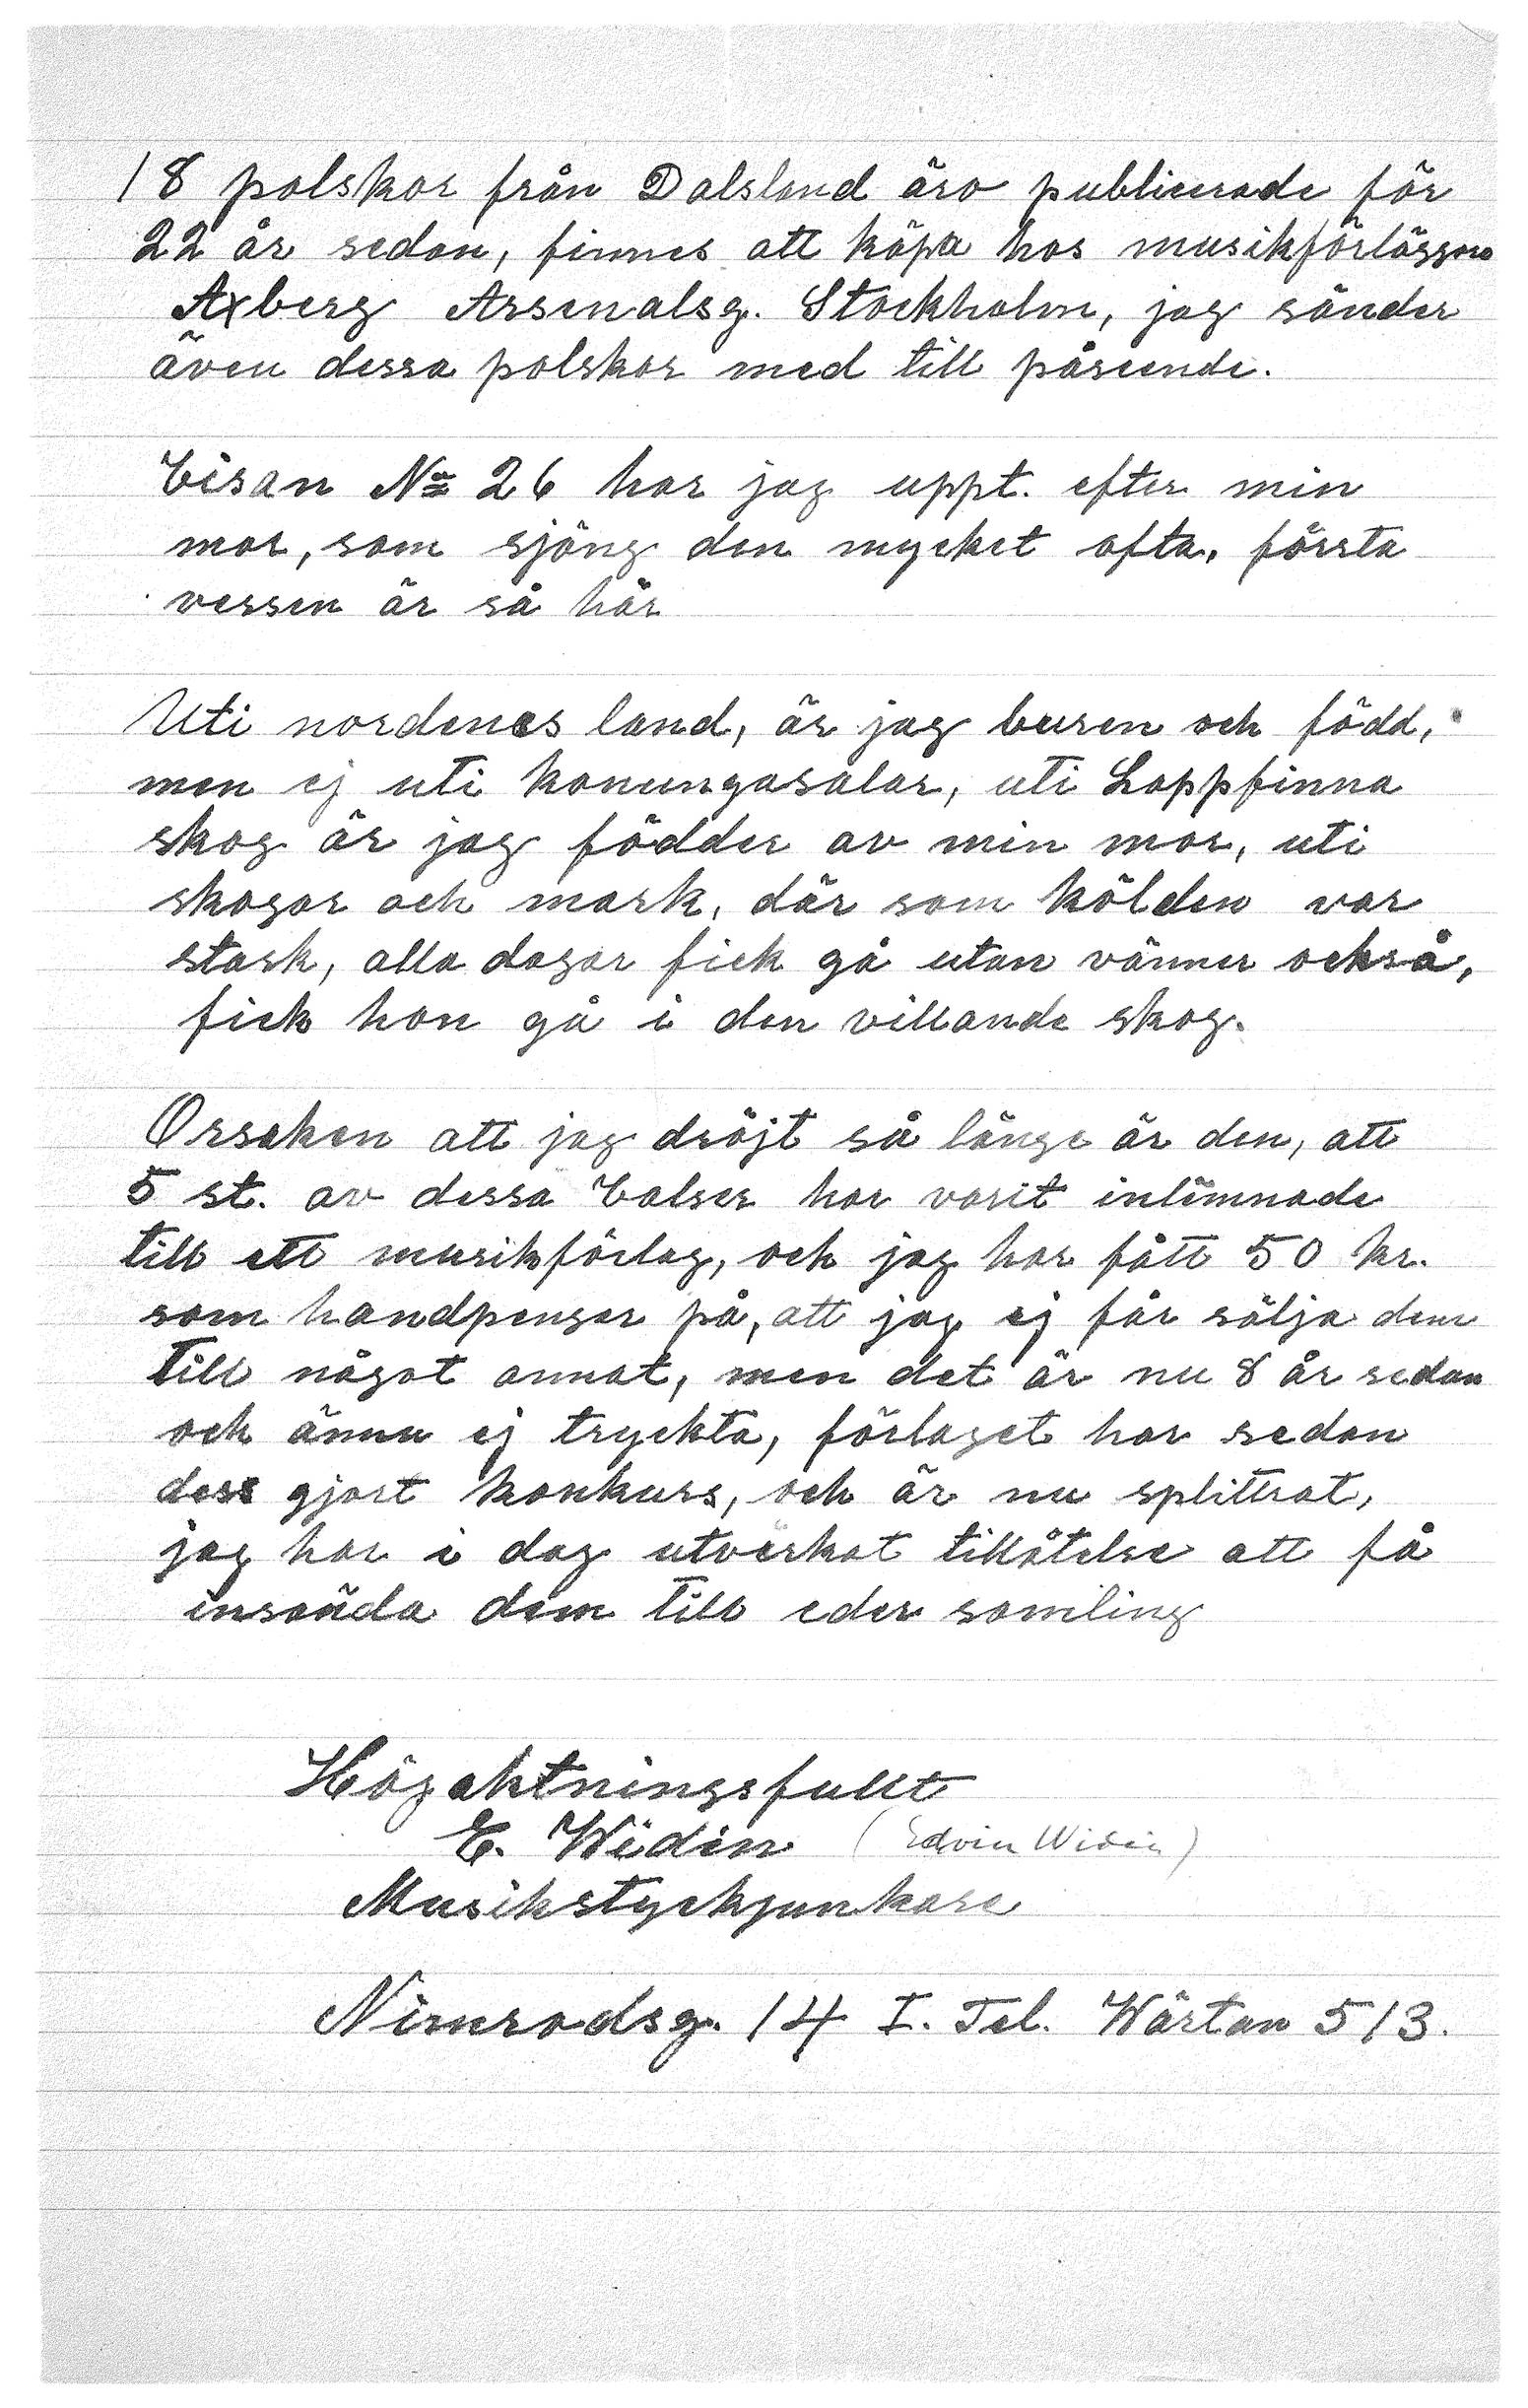 18 polskor från Dalsland äro publicerade för
22 år sedan, finnes att köpa hos musikförläggare
Axberg Arsenalsg. Stockholm, jag sänder
även dessa polskor med till påseende.
Visan No 26 har jag uppt. efter min
mor, som sjöng den mycket ofta, första
versen är så här
Uti nordenes land, är jag buren och född,
men ej uti konungasalar, uti Lappfinna
skog är jag födder av min mor, uti
skogar och mark, där som kölden var
stark, alla dagar fick gå utan vänner också,
fick hon gå i den villande skog.
Orsaken att jag dröjt så länge är den, att
5 st. av dessa Valser har varit inlämnade
till ett musikförlag, och jag har fått 50 kr.
som handpengar på, att jag ej får sälja dem
till något annat, men det är nu 8 år sedan
och ännu ej tryckta, förlaget har sedan
dess gjort konkurs, och är nu splittrat,
jag har i dag utverkat tillåtelse att få
insända dem till eder samling
Högaktningsfullt
E. Widèn (Edvin Widén)
Musikstyckjunkare
Nimrodsg. 14 I. Tel. Wärtan 513.